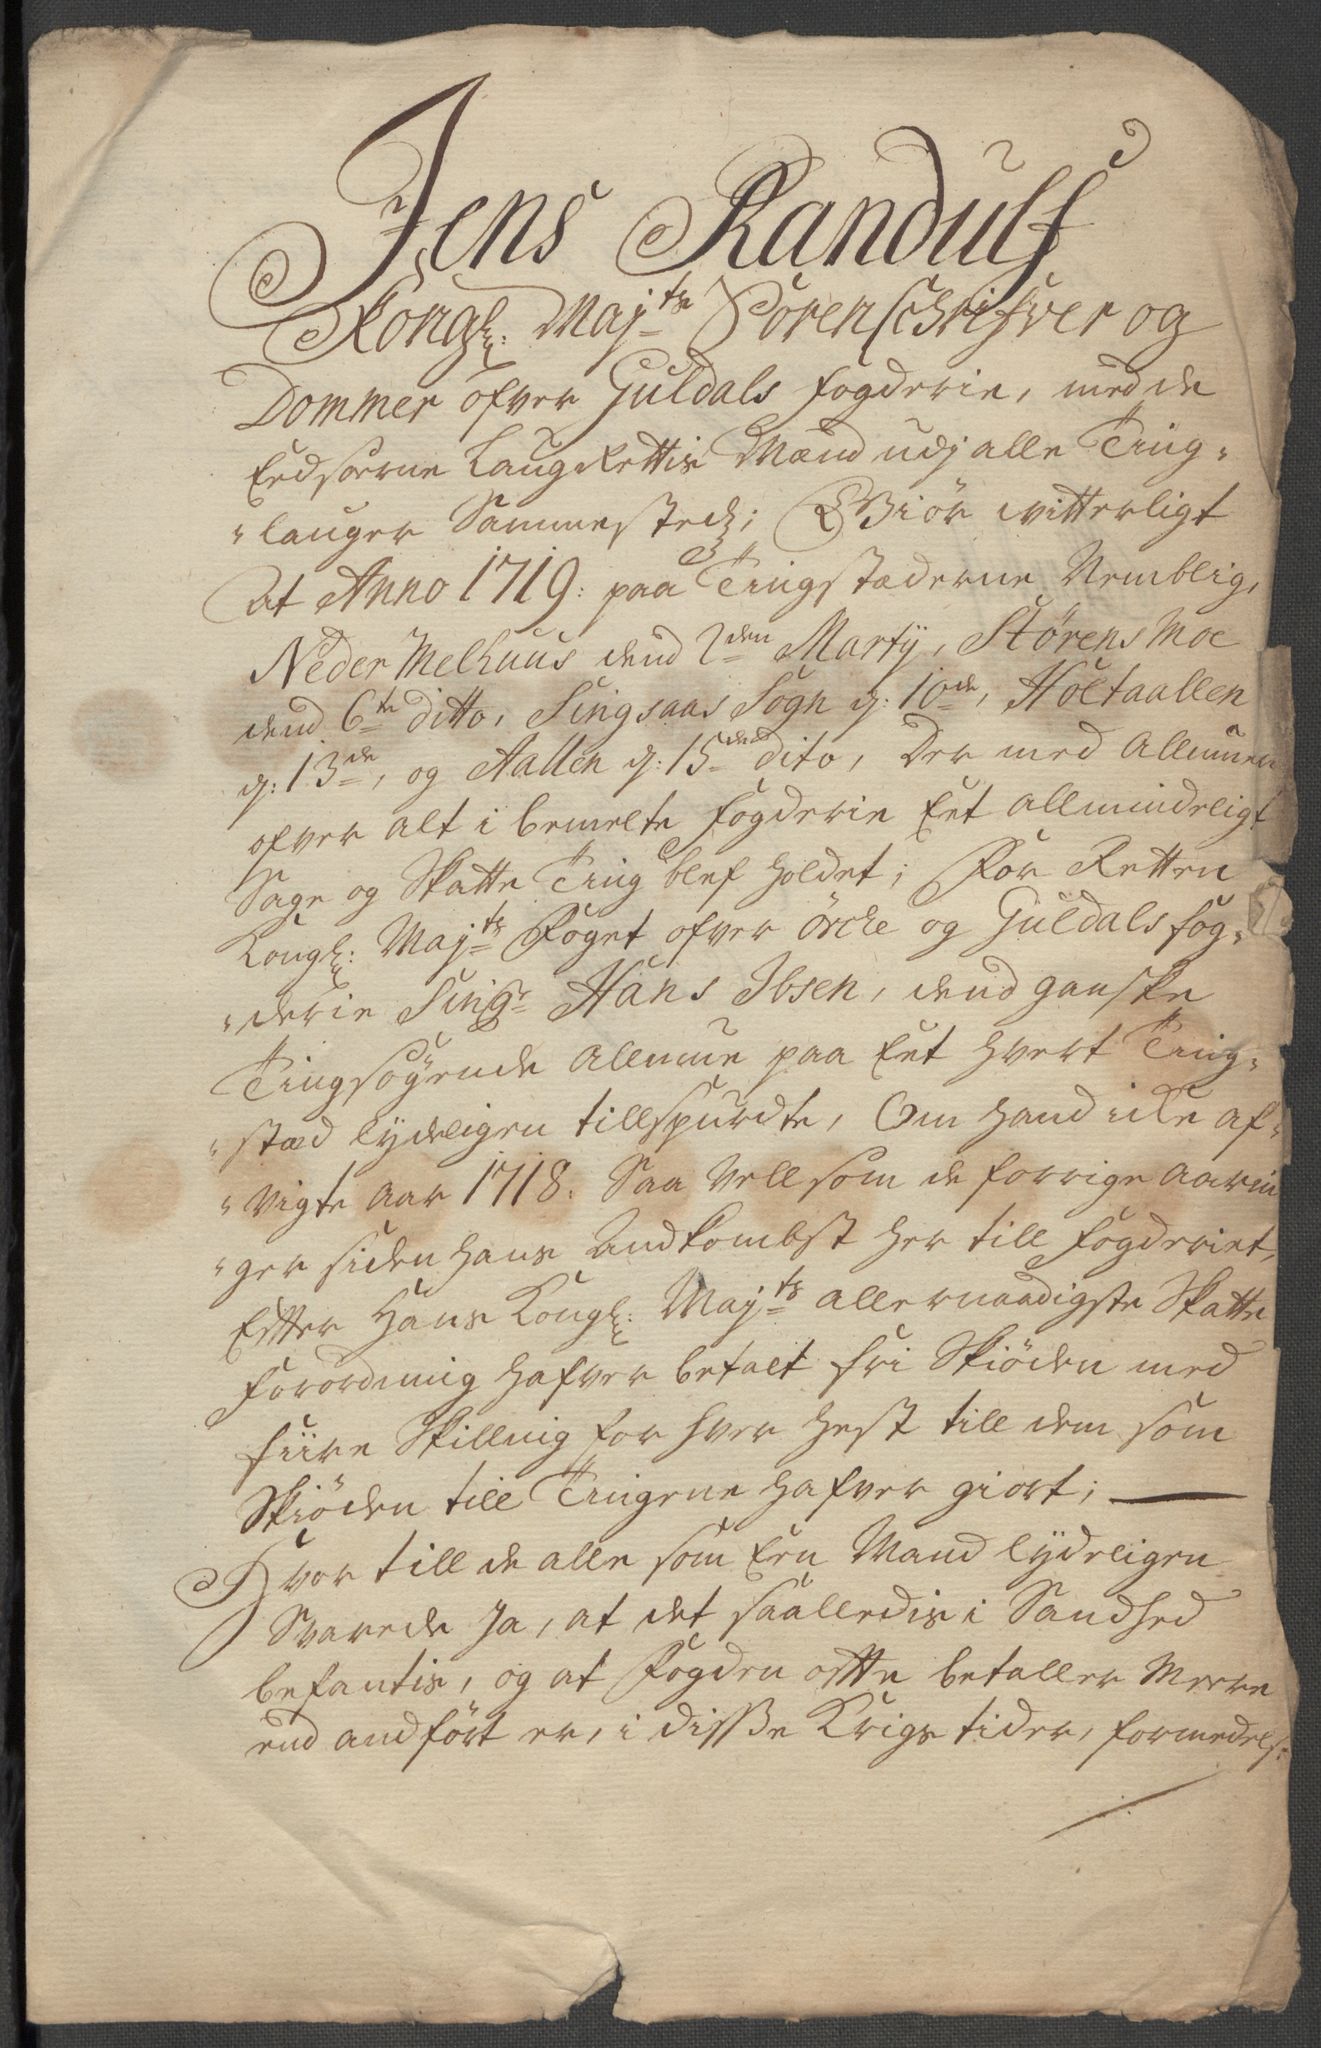 Jens Randulf
Kongl: Maj:ts Sorenschrifver og
Dommer ofver Guldals fogderie, med de
Eedsorne Laug Rettis Mænd udj alle Ting-
-lauger Sammestedz; Giör vitterligt
At Anno 1719: paa Tingstæderne Nemblig,
Neder Melhuus dend 2den Martij, Störens Moe
dend 6te ditto, Singsaas Sogn d: 10de, Holtaallen
d: 13de, og Aallen d: 15de dito, Der med Allmuen
ofver alt i bemelte fogderie Eet allmindeligt
Sage og Skatte Ting blef holdet; For Retten
Kongl: Maj:ts Foget ofver Örche og Guldals fog-
-derie Sing:r Hans Ibsen, dend gandske
Tingsögende Allmue paa Eet hvert Ting-
-stæd lydeligen tillspurdte, Om hand icke af-
-vigte Aar 1718. Saa vell som de forrige Aarin
-ger siden hans Andkombst her till fogderiet,
Efter Hans Kongl: Maj:ts allernaadigste Skatte
forordning hafver betalt fri Skiöden med
fiire Skilling for hver hest till dem som
Skiöden till Tingene hafver giort;
Hvor till de alle som Een Mand lydeligen
Svarede Ja, at det saalledis i Sandhed
befantis, og at Fogden ofte betaller Meere
end andfört er, i disse Krigs tider, formedelst